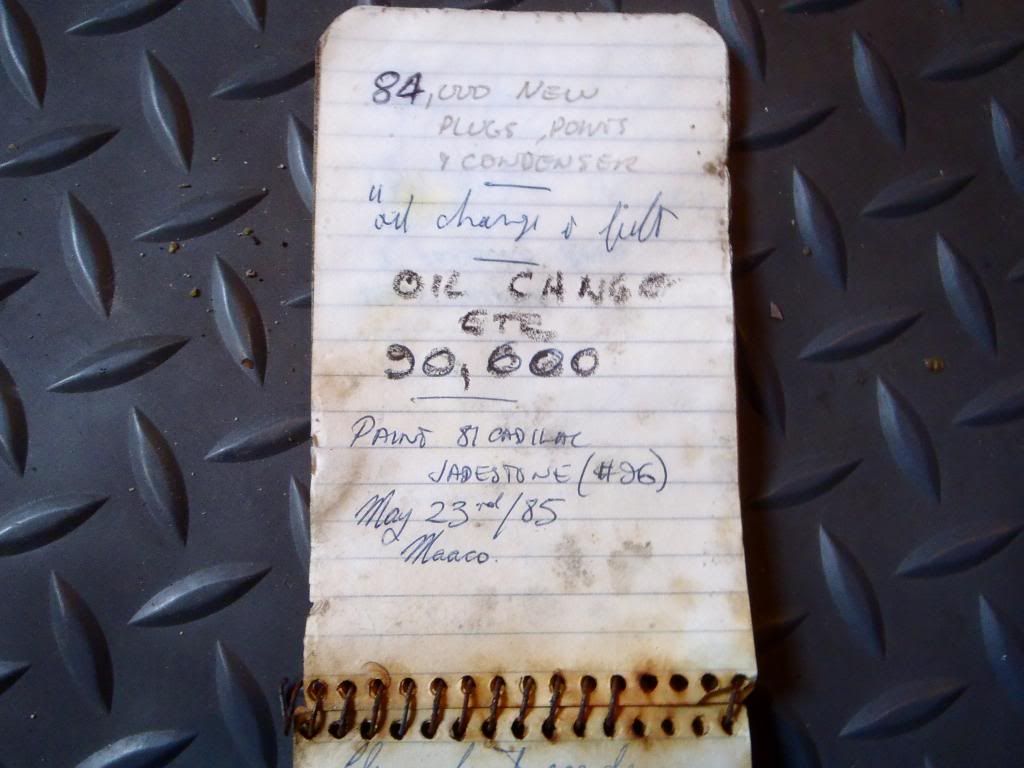 84,000 NEW
PLUGS, POINTS
& CONDENSER
"oil change & filt
OIL CHANGE
ETC
90,000
PAINT 81 CADILAC
JADESTONE (#96)
May 23rd/85
Maaco.